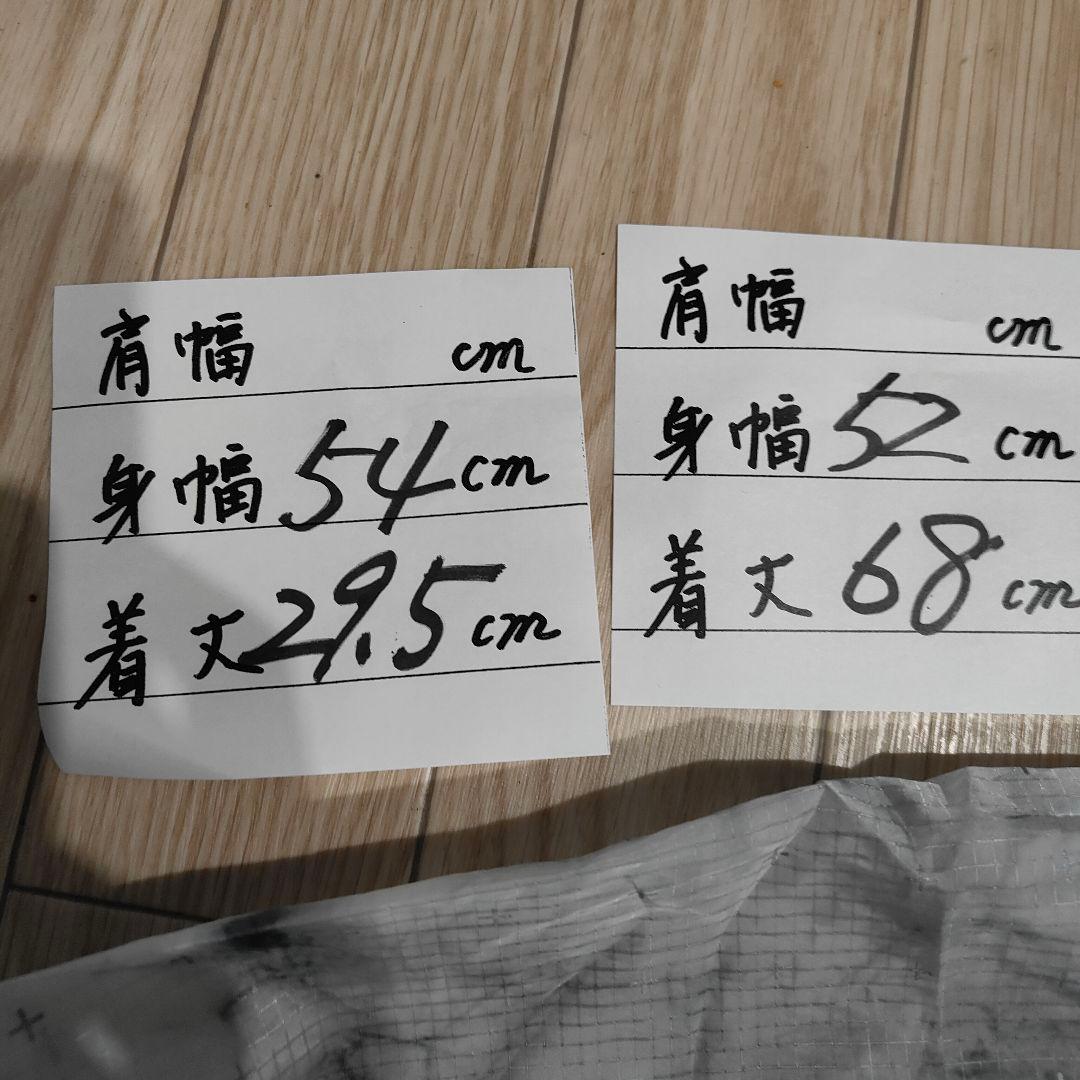 肩幅 cm
身幅 54 cm
着丈 29.5 cm
肩幅 cm
身幅 52 cm
着丈 68 cm